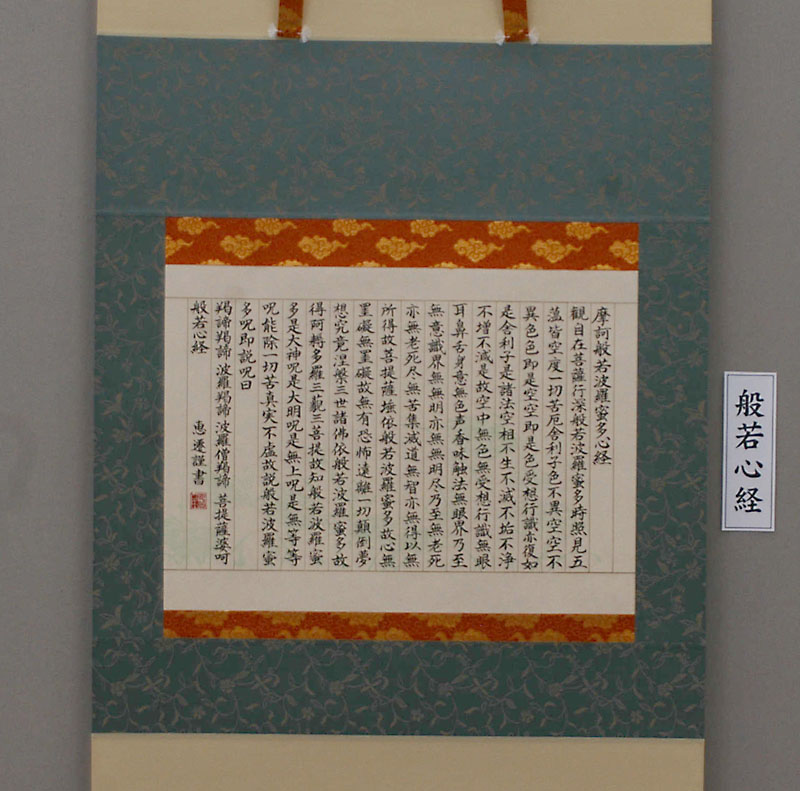 摩訶般若波羅蜜多心経
観自在菩薩行深般若波羅蜜多時照見五
蘊皆空度一切苦厄舎利子色不異空空不
異色色即是空空即是色受想行識亦復如
是舎利子是諸法空相不生不滅不垢不浄
不増不減是故空中無色無受想行識無眼
耳鼻舌身意無色声香味触法無眼界乃至
無意識界無無明亦無無明尽乃至無老死
亦無老死尽無苦集滅道無智亦無得以無
所得故菩提薩埵依般若波羅蜜多故心無
罣礙無罣礙故無有恐怖遠離一切顛倒夢
想究竟涅槃三世諸佛依般若波羅蜜多故
得阿耨多羅三藐三菩提故知般若波羅蜜
多是大神呪是大明呪是無上呪是無等等
呪能除一切苦真実不虚故説般若波羅蜜
多呪即説呪曰
羯諦羯諦 波羅羯諦 波羅僧羯諦 菩提薩婆呵
般若心経 恵遷謹書
般若心経